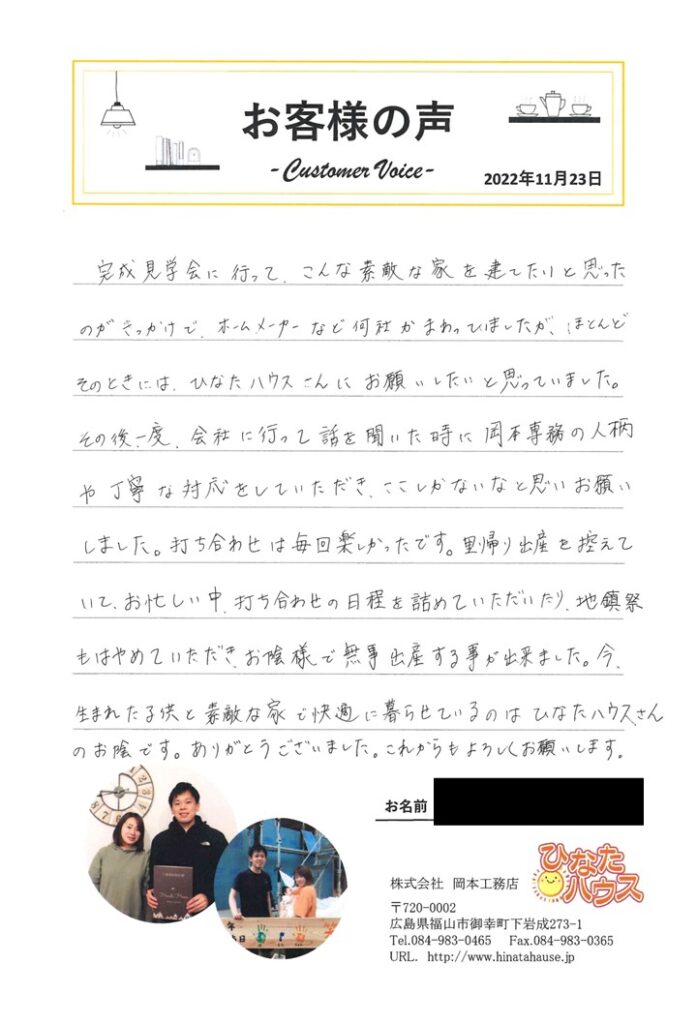 お客様の声
-Customer Voice-
2022年11月23日
完成見学会に行って、こんな素敵な家を建てたいと思った
のがきっかけで、ホームメーカーなど何社かまわってみましたが、ほとんど
そのときには、ひなたハウスさんにお願いしたいと思っていました。
その後一度、会社に行って話を聞いた時に岡本専務の人柄
や丁寧な対応をしていただき、ここしかないなと思いお願い
しました。打ち合わせは毎回楽しかったです。里帰り出産を控えて
いて、お忙しい中、打ち合わせの日程を詰めていただいたり、地鎮祭
もはやめていただき、お陰様で無事出産する事が出来ました。今、
生まれた子供と素敵な家で快適に暮らせているのはひなたハウスさん
のお陰です。ありがとうございました。これからもよろしくお願いします。
お名前
ひなた
ハウス
株式会社 岡本工務店
〒720-0002
広島県福山市御幸町下岩成273-1
Tel.084-983-0465 Fax.084-983-0365
URL. http://www.hinatahause.jp